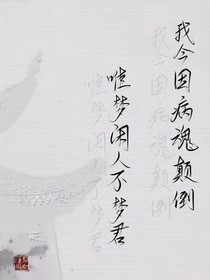 我今因病魂颠倒
唯梦闲人不梦君